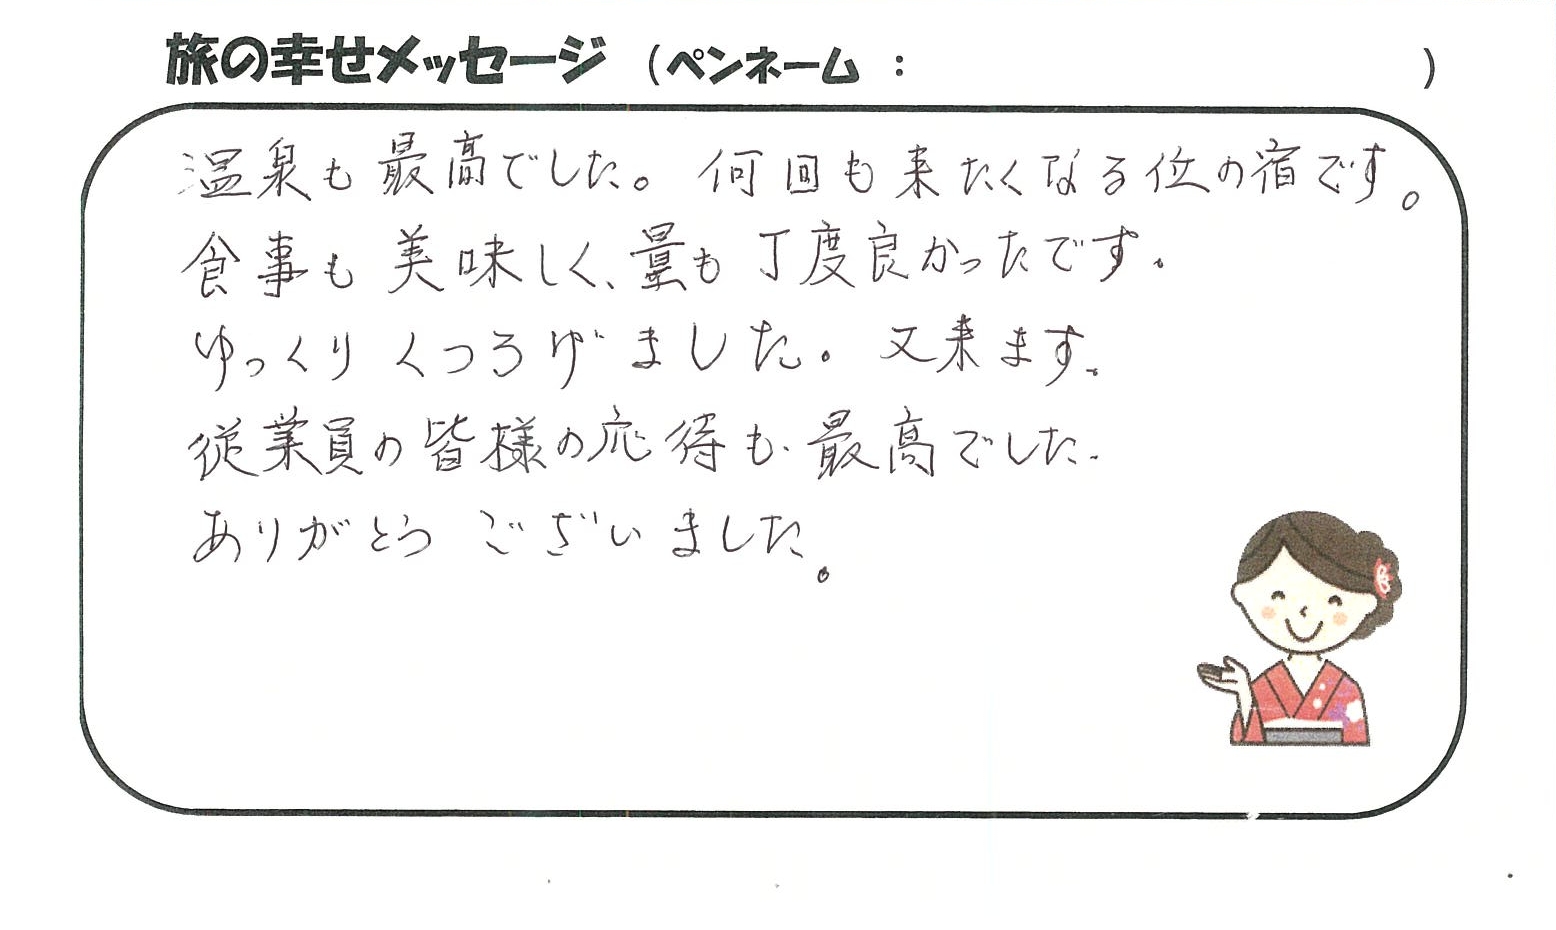 旅の幸せメッセージ （ペンネーム ： ）
温泉も最高でした。何回も来たくなる位の宿です。
食事も美味しく、量も丁度良かったです。
ゆっくりくつろげました。又来ます。
従業員の皆様の応待も最高でした.
ありがとうございました。